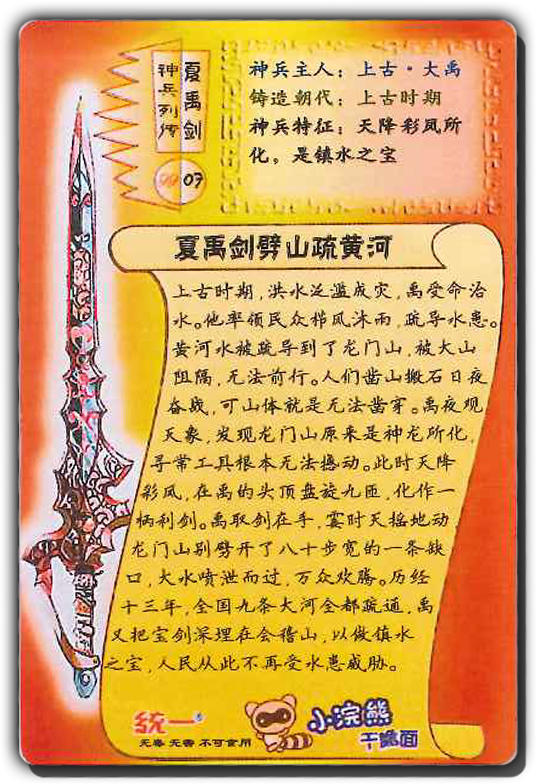 夏禹剑
神兵列传
07
神兵主人：上古·大禹
铸造朝代：上古时期
神兵特征：天降彩凤所
化，是镇水之宝
夏禹剑劈山疏黄河
上古时期，洪水泛滥成灾，禹受命治
水。他率领民众栉风沐雨，疏导水患。
黄河水被疏导到了龙门山，被大山
阻隔，无法前行。人们凿山搬石日夜
奋战，可山体就是无法凿穿。禹夜观
天象，发现龙门山原来是神龙所化，
寻常工具根本无法撼动。此时天降
彩凤，在禹的头顶盘旋九匝，化作一
柄利剑。禹取剑在手，霎时天摇地动，
龙门山别劈开了八十步宽的一条缺
口，大水喷泄而过，万众欢腾。历经
十三年，全国九条大河全都疏通，禹
又把宝剑深埋在会稽山，以做镇水
之宝，人民从此不再受水患威胁。
统一
无毒 无害 不可食用
小浣熊
干脆面